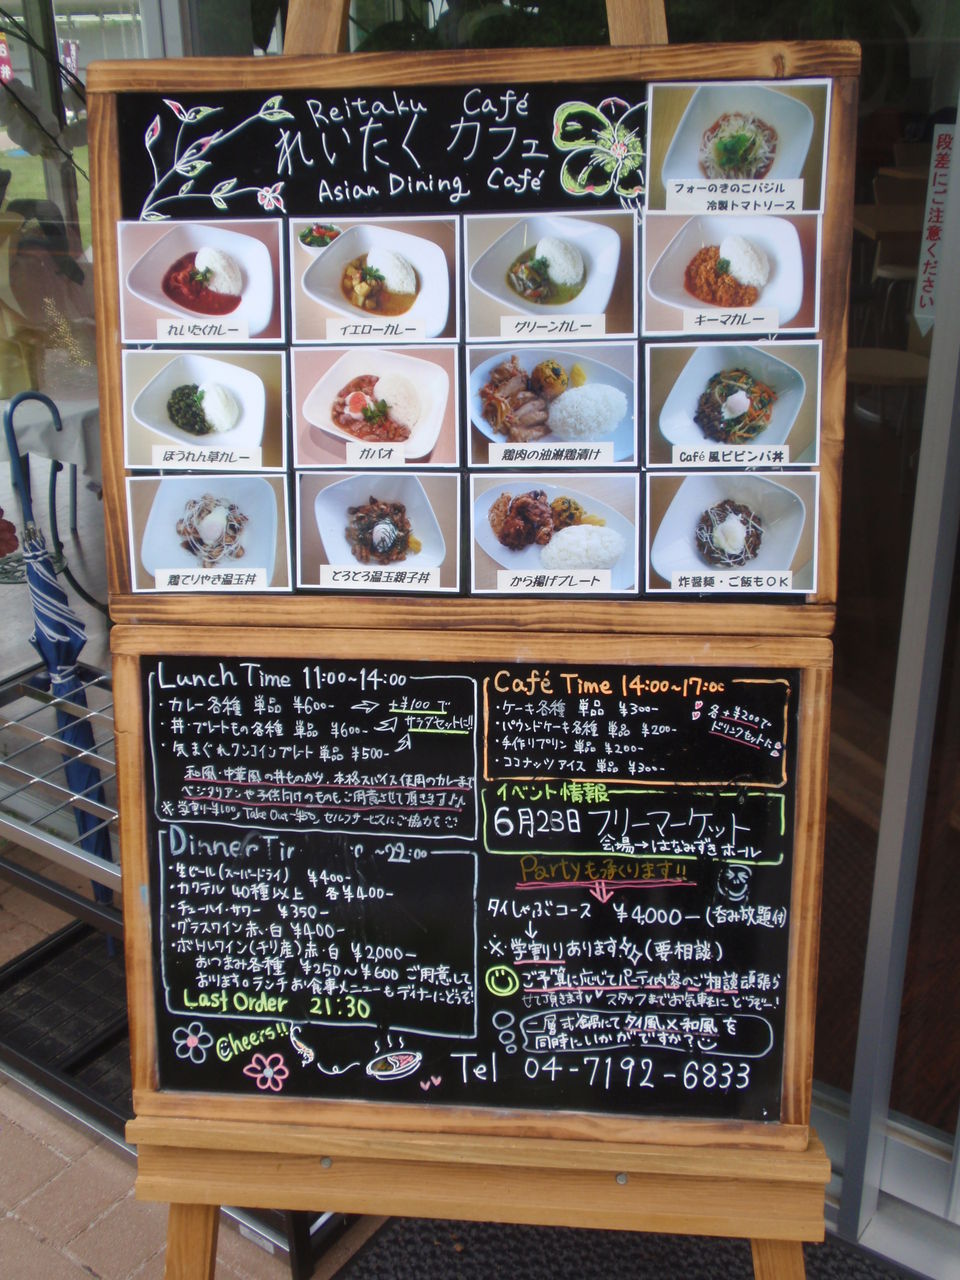 Reitaku Café
れいたく カフェ
Asian Dining Café
フォーのきのこバジル
冷製トマトソース
れいたくカレー
イエローカレー
グリーンカレー
キーマカレー
ほうれん草カレー
ガパオ
鶏肉の油淋鶏漬け
Café風ビビンバ丼
鶏てりやき温玉丼
とろとろ温玉親子丼
から揚げプレート
炸醤麺・ご飯もOK
段差にご注意ください
Lunch Time 11:00~14:00
・カレー各種 単品 ¥600-
+¥100で
サラダセットに!!
・丼・プレートもの各種 単品 ¥600-
・気まぐれワンコインプレート 単品 ¥500-
和風・中華風の丼ものから、本格スパイス使用のカレーまで
ベジタリアンや子供向けのものもご用意させて頂きます
※学割り-¥100, Take Out セルフサービスにご協力下さい
Dinner Ti ~22:00
・生ビール(スーパードライ) ¥400-
・カクテル 40種以上 各¥400-
・チューハイ・サワー ¥350-
・グラスワイン赤、白 ¥400-
・ボトルワイン(チリ産)赤・白 ¥2,000-
おつまみ各種 ¥250~¥600 ご用意して
おります。ランチお食事メニューもディナーにどうぞ
Last Order 21:30
Cheers!!
Café Time 14:00~17:00
・ケーキ各種 単品 ¥300-
・パウンドケーキ各種 単品 ¥200-
・手作りプリン 単品 ¥200-
・ココナッツアイス 単品 ¥300-
各+¥200で
ドリンクセットに
イベント情報
6月23日 フリーマーケット
会場→はなみずきホール
Partyも承ります!!
タイしゃぶコース ¥4,000-(呑み放題付)
※学割りあります(要相談)
ご予算に応じてパーティ内容のご相談頑張ら
せて頂きます スタッフまでお気軽にどうぞー!
二層式鍋にてタイ風×和風を
同時にいかがですか?
Tel 04-7192-6833